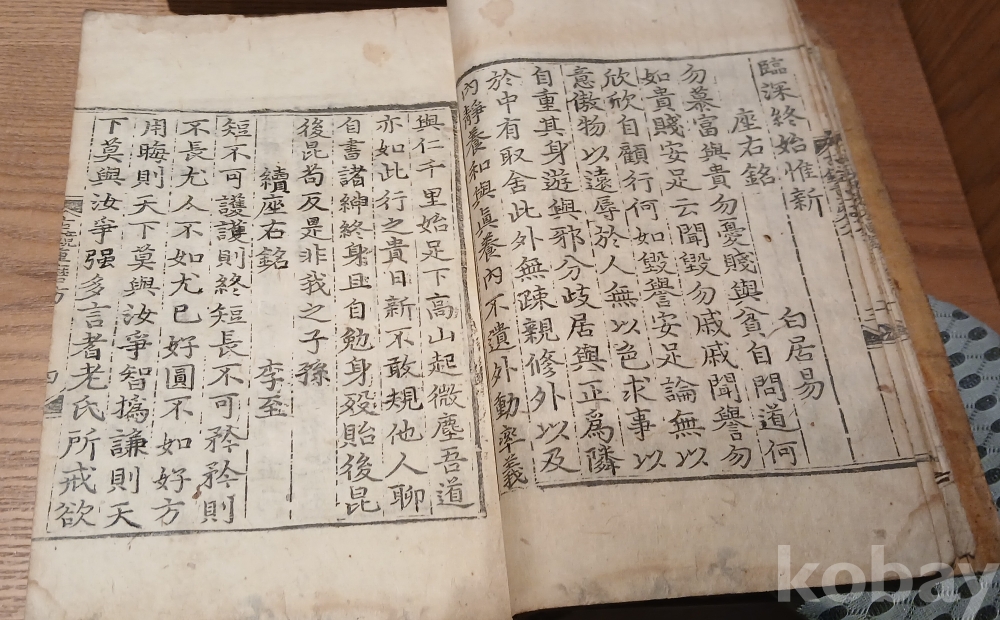 臨深終始惟新
座右銘 白居易
勿慕富與貴勿憂賤與貧自問道何
如貴賤安足云聞毀勿戚戚聞譽勿
欣欣自顧行何如毀譽安足論無以
意傲物以遠辱於人無以色求事以
自重其身遊與邪分歧居與正爲隣
於中有取舍此外無疎親修外以及
內靜養和與眞養內不遺外動率義
與仁千里始足下高山起微塵吾道
亦如此行之貴日新不敢規他人聊
自書諸紳終身且自勉身歿貽後昆
後昆苟反是非我之子孫
續座右銘 李至
短不可護護則終短長不可矜矜則
不長尤人不如尤已好圓不如好方
用晦則天下莫與汝爭智撝謙則天
下莫與汝爭强多言者老氏所戒欲
kobay